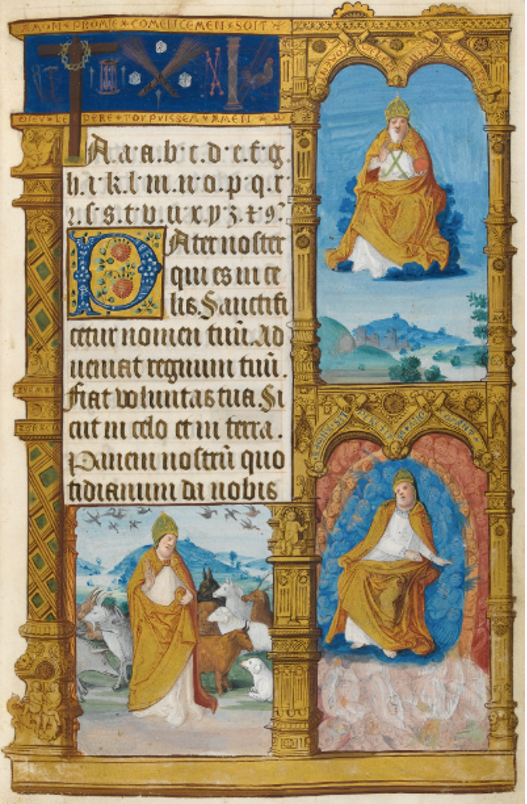 EMON · PROMIE · COMENCEMEN · SOIT
DIEV · LE · PERE · TOVPVISSEM · AMEN
A.a.a.b.c.d.e.f.g.
h.i.k.l.m.n.o.p.q.r
ꝛ.ſ.s.t.v.u.x.y.z.⁊.ꝯ:
Pater noster
qui es in ce
lis. Sanctifi
cetur nomen tuū. Ad
ueniat regnum tuū.
Fiat voluntas tua. Si
cut in celo et in terra.
Panem nostrū quo
tidianum da nobis